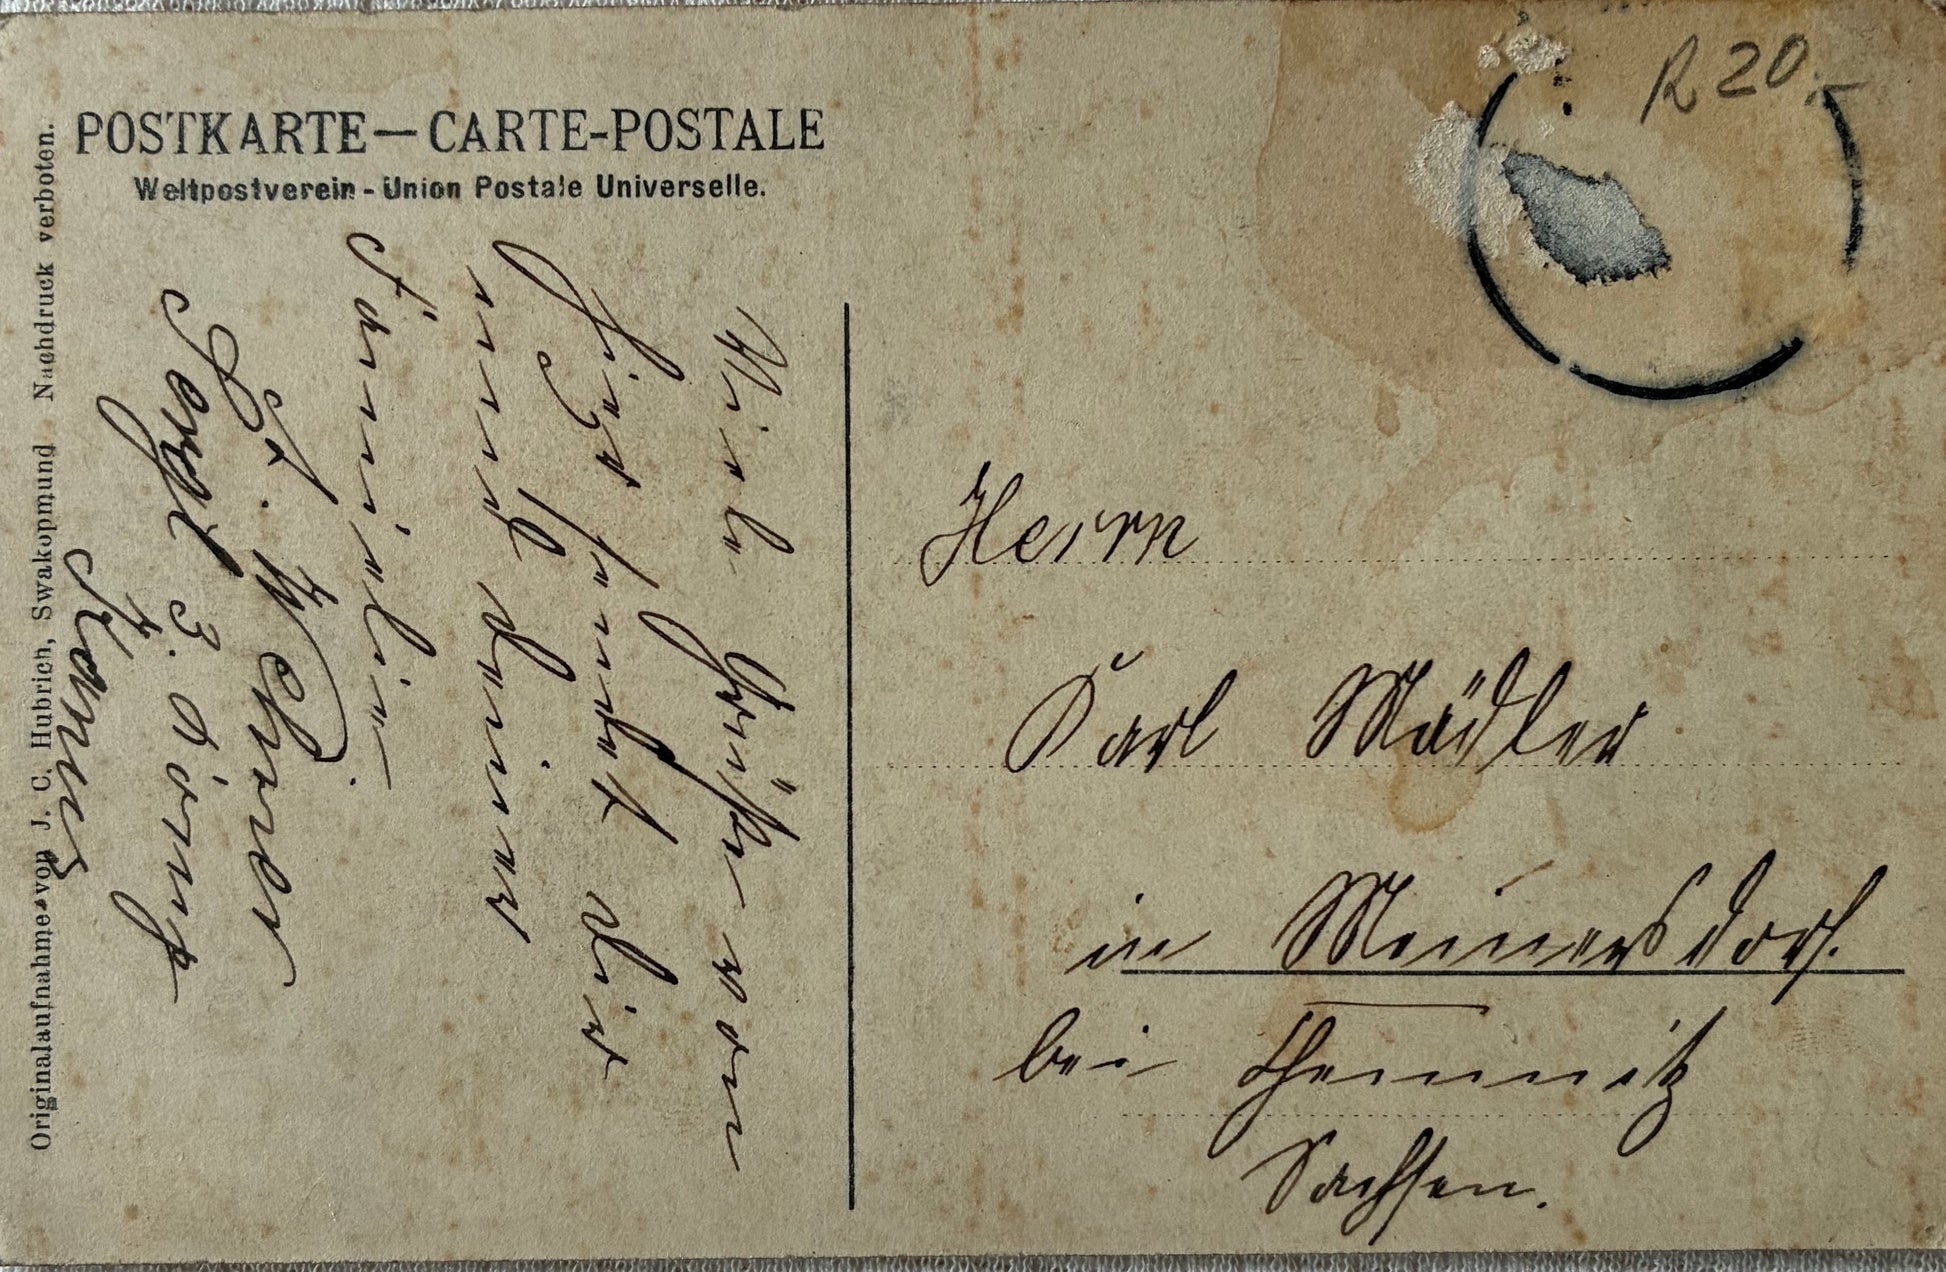 POSTKARTE — CARTE-POSTALE
Weltpostverein - Union Postale Universelle.
Originalaufnahme von J. C. Hubrich, Swakopmund Nachdruck verboten.
R 20.-
Viele Grüße von
hier sendet dir
und deiner
Familie
Sergt 3. Komp
Herrn
Karl Mädler
in Meinersdorf.
bei Chemnitz
Sachsen.